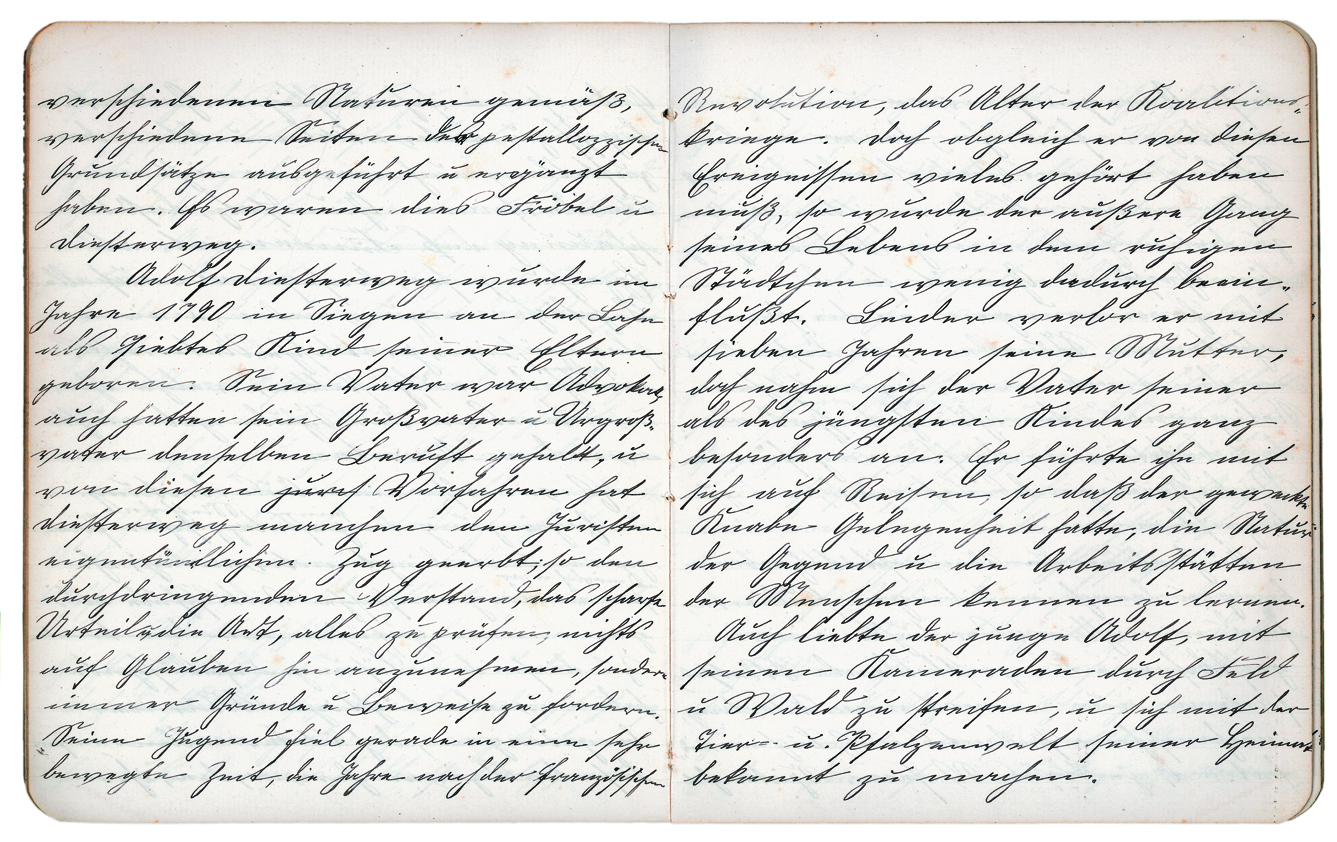 verschiedenen Naturen gemäß,
verschiedene Seiten der pestallozzischen
Grundsätze ausgeführt u ergänzt
haben. Es waren dies Fröbel u
Diesterweg.
Adolf Diesterweg wurde im
Jahre 1790 in Siegen an der Lahn
als siebtes Kind seiner Eltern
geboren. Sein Vater war Advokat,
auch hatten sein Großvater u Urgroß-
vater denselben Beruf gehabt, u
von diesen Vorfahren hat
Diesterweg manchen den Juristen
eigentümlichen Zug geerbt; so den
durchdringenden Verstand, das scharfe
Urteil, die Art, alles zu prüfen, nichts
auf Glauben hin anzunehmen, sondern
immer Gründe u Beweise zu fordern.
Seine Jugend fiel gerade in eine sehr
bewegte Zeit, die Jahre nach der französischen
Revolution, das Alter der Koalitions-
kriege. Doch obgleich er von diesen
Ereignissen vieles gehört haben
muß, so wurde der äußere Gang
seines Lebens in dem ruhigen
Städtchen wenig dadurch beein-
flußt. Leider verlor er mit
sieben Jahren seine Mutter,
doch nahm sich der Vater seiner
als des jüngsten Kindes ganz
besonders an. Er führte ihn mit
sich auf Reisen, so daß der geweckte
Knabe Gelegenheit hatte, die Natur
der Gegend u die Arbeitsstätten
der Menschen kennen zu lernen.
Auch liebte der junge Adolf, mit
seinen Kameraden durch Feld
u Wald zu streifen, u sich mit der
Tier- u. Pflanzenwelt seiner Heimat
bekannt zu machen.